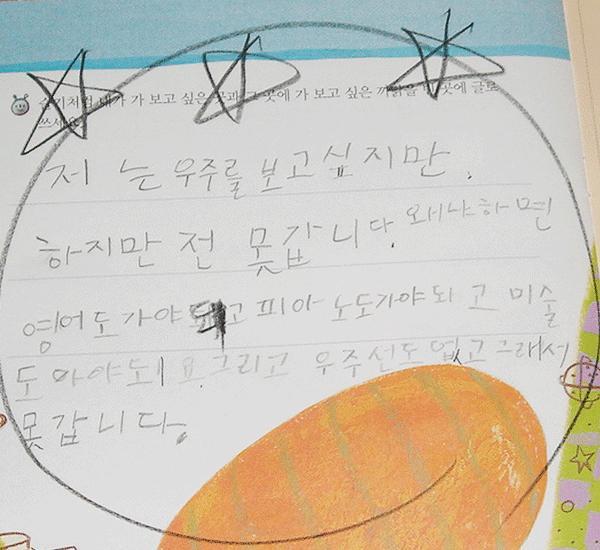 슬기처럼 내가 가 보고 싶은 곳과 그 곳에 가 보고 싶은 까닭을 빈 곳에 글로
쓰세요.
저 는 우주를 보고싶지만.
하지만 전 못갑니다. 왜냐하면
영어도가야되고 피아노도가야되고 미술
도 마야도l요. 그리고 우주선도 업고 그래서
못갑니다.